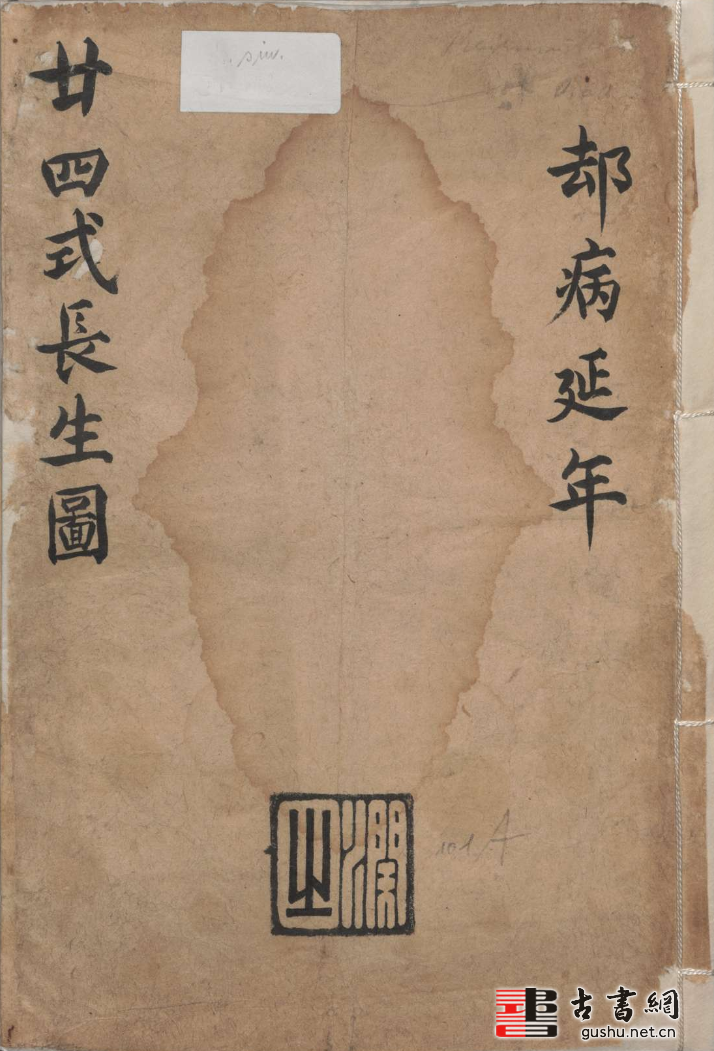 却病延年
廿四式長生圖
101 A
古書網
gushu.net.cn